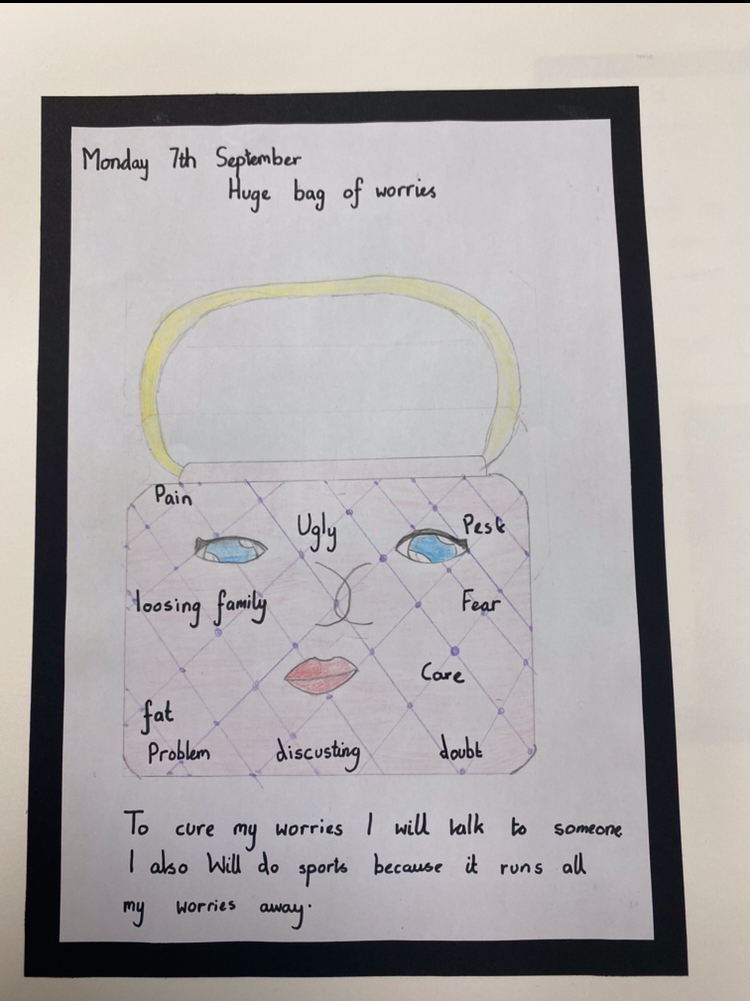 Monday 7th September
Huge bag of worries
Pain
Ugly
Pest
loosing family
Fear
Care
fat
Problem discusting doubt
To cure my worries I will talk to someone
I also Will do sports because it runs all
my worries away.